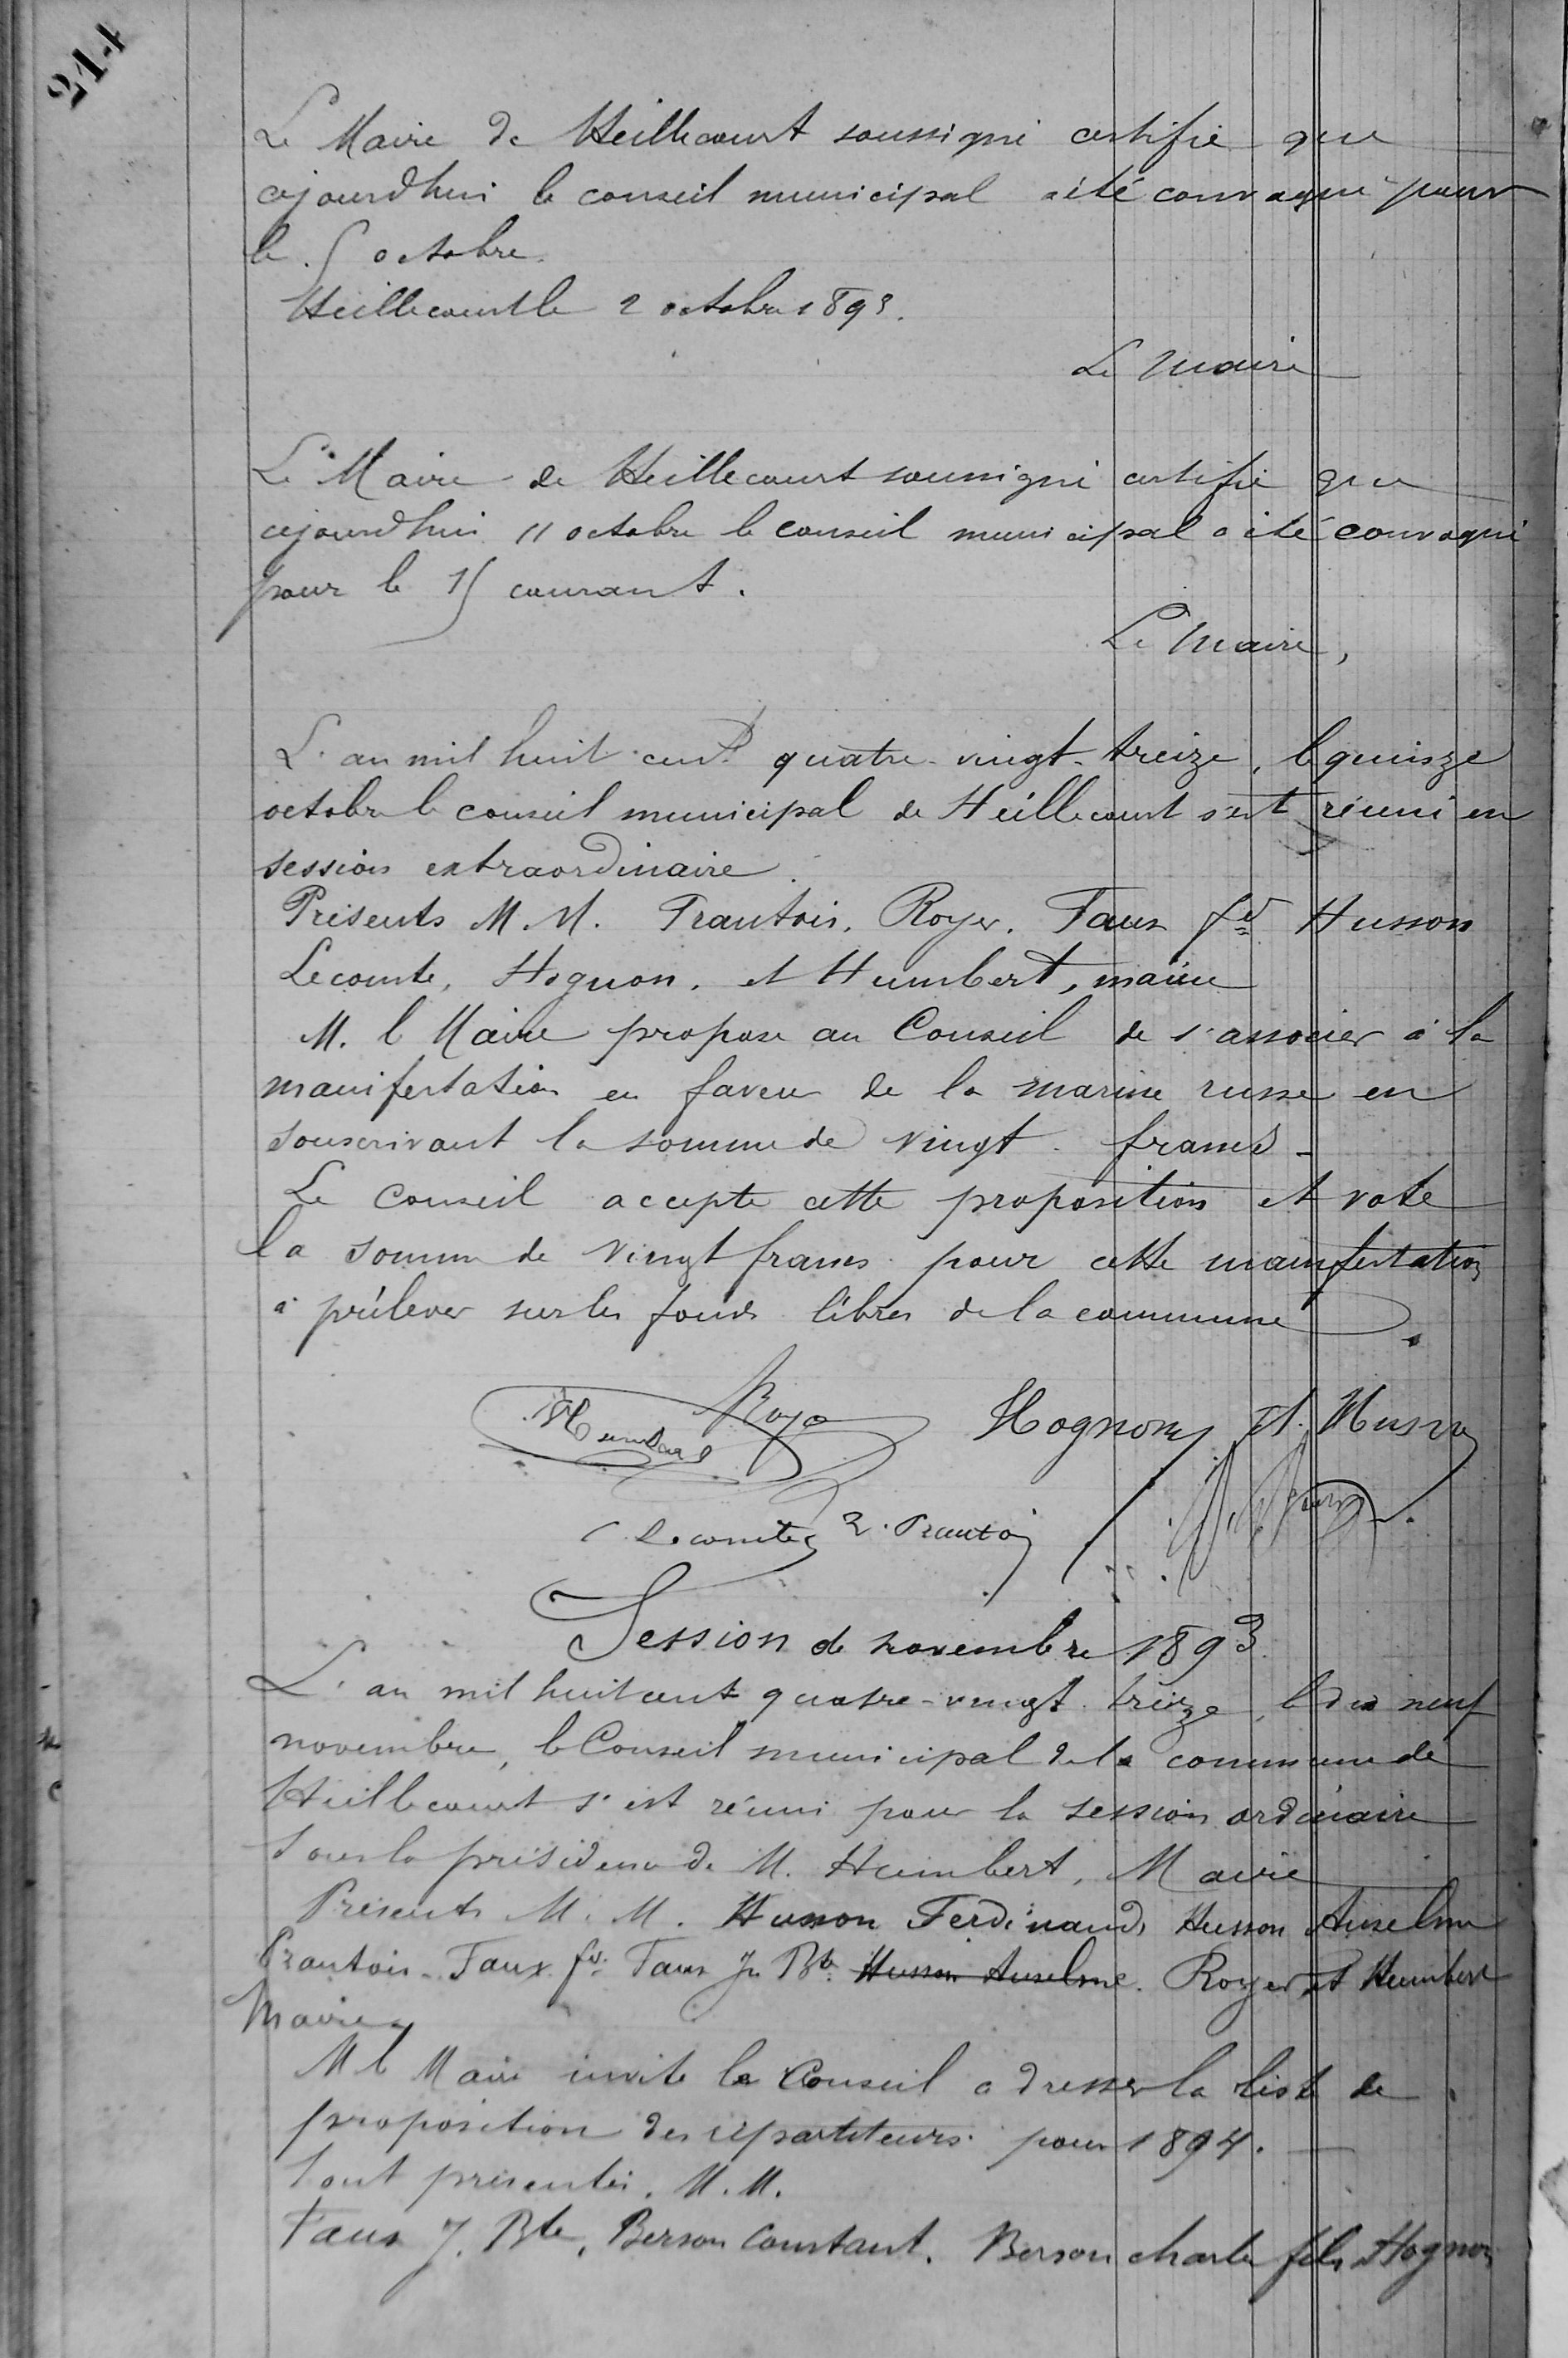 214
Le Maire de Heillecourt soussigné certifie que
cejourd'hui le conseil municipal a été convoqué pour
le 5 octobre.
Heillecourt le 2 octobre 1893.
Le Maire
Le Maire de Heillecourt soussigné certifie que
cejourd'hui 11 octobre le conseil municipal a été convoqué
pour le 15 courant.
Le Maire,
L'an mil huit cent quatre-vingt-treize, le quinze
octobre le conseil municipal de Heillecourt s'est réuni en
session extraordinaire.
Présents M.M. Frantois, Royer, Faux fd Husson
Lecomte, Hognon, et Humbert, maire
M. le Maire propose au Conseil de s'associer à la
manifestation en faveur de la marine russe en
souscrivant la somme de vingt francs -
Le Conseil accepte cette proposition et vote
la somme de vingt francs pour cette manifestation
à prélever sur les fonds libres de la commune.
Humbert Royer Hognon A. Husson
Lecomte
Session de novembre 1893.
L'an mil huit cent quatre-vingt treize, le dix neuf
novembre, le Conseil municipal de la commune de
Heillecourt s'est réuni pour la session ordinaire
sous la présidence de M. Humbert, Maire
Présents M.M. Husson Ferdinand, Husson Anselme
Frantois. Faux fd. Faux Jn Bte. Husson Anselme. Royer et Humbert
Maire
M le Maire invite le Conseil a dresser la liste de
proposition des répartiteurs pour 1894.
Sont présentés. M.M.
Faux J. Bte, Berson Constant. Berson charle fils Hognon